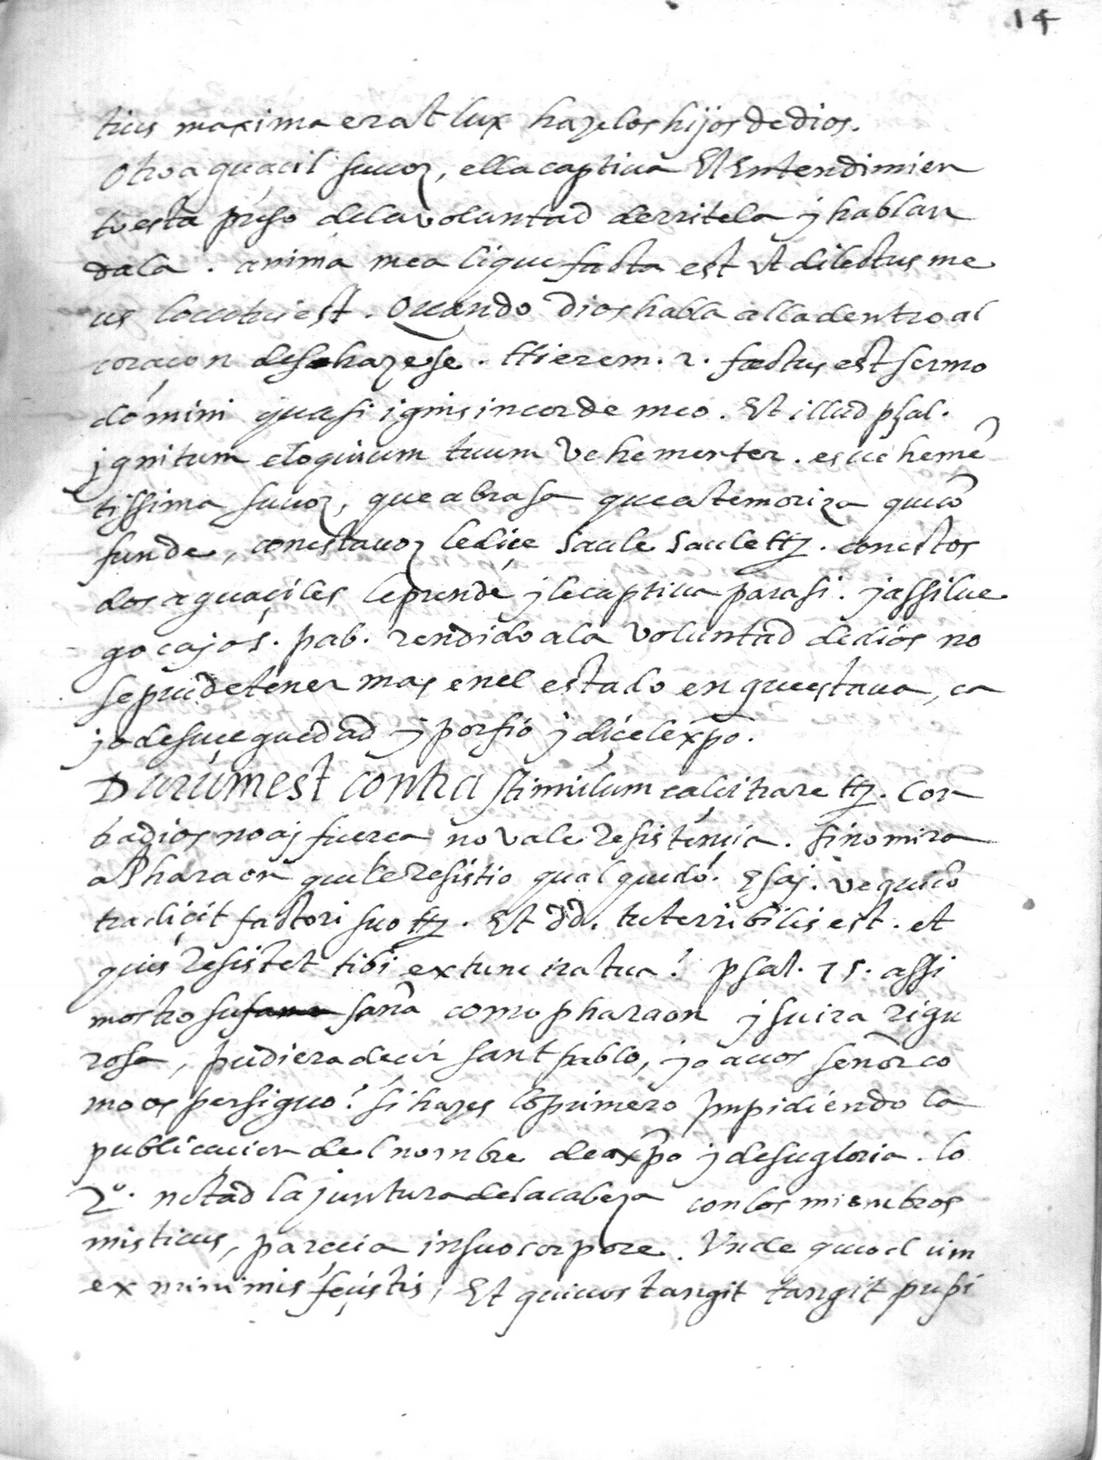 14
tius maxima erat lux haze los hijos de dios.
Otro aguacil su uoz, ella captiua El Entendimien
to esta preso de la voluntad derritela y hablan
dala. anima mea liquefacta est vt dilectus me
us locutus est. Quando Dios habla alla dentro al
coraçon deshazese. Hierem. 2. factus est sermo
domini quasi ignis in corde meo. Et illud psal.
ignitum eloquium tuum vehementer. es uehemē
tissima su uoz, que abrasa que atemoriza que cō
funde, con esta uoz le dice Saule Saule etz. con estos
dos aguaçiles le prende y le captiua para si. y assi lue
go cayo S. pab. rendido a la voluntad de dios no
se pudo tener mas en el estado en que estaua, ca
yo de su ceguedad y porfió y dícele xpo.
Durum est contra stimulum calcitrare etz. Con
tra dios no aj fuerca no vale resistençia. sino mira
a Pharaon que le resistio qual quedó. Esaj. ve qui cō
tradiçit factori suo etz. Et dd. tu terribilis est. et
quis resistet tibi ex tunc ira tua? psal. 75. assi
mostro su saña como pharaon y su ira rigu
rosa, pudiera decir sant pablo, yo a uos señor co
mo os persiguo? si hazes lo primero Impidiendo la
publicacion del nombre de xpo y de su gloria. lo
2º. notad la juntura de la cabeza con los miembros
misticus, parecia in suo corpore. Vnde quod uni
ex minimis feçistis, Et qui uos tangit tangit pupi